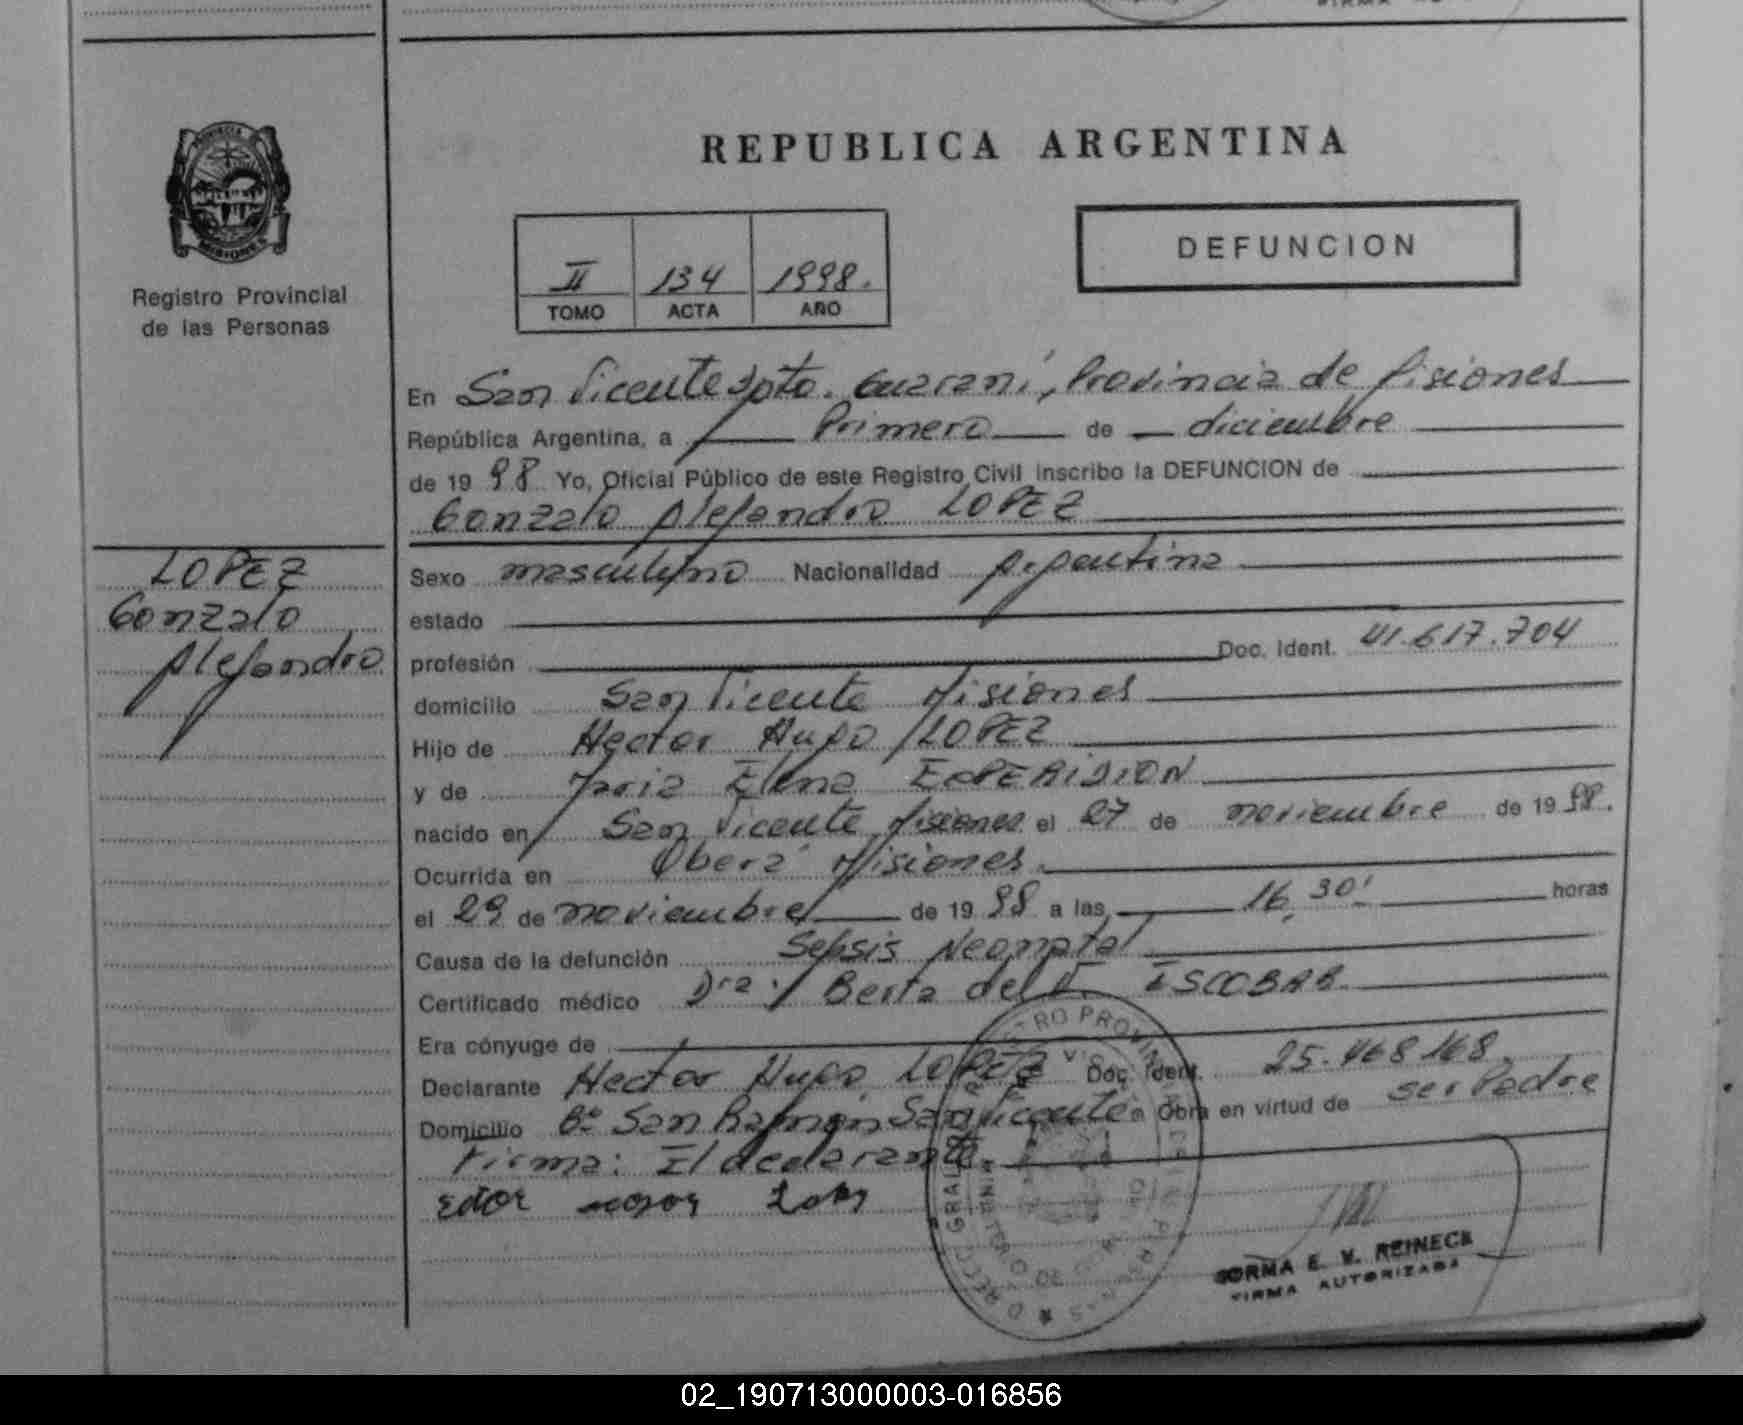 REPUBLICA ARGENTINA
PROVINCIA DE
MISIONES
Registro Provincial
de las Personas
II 134 1998.
TOMO ACTA AÑO
DEFUNCION
En San Vicente Dpto. Guaraní, Provincia de Misiones
República Argentina, a Primero de diciembre
de 1998 Yo, Oficial Público de este Registro Civil inscribo la DEFUNCION de
Gonzalo Alejandro LOPEZ
LOPEZ
Gonzalo
Alejandro
Sexo masculino Nacionalidad Argentina
estado
profesión Doc. Ident. 41.617.704
domicilio San Vicente Misiones
Hijo de Hector Hugo LOPEZ
y de Maria Elena
nacido en San Vicente Misiones el 27 de noviembre de 1998.
Ocurrida en Oberá Misiones.
el 29 de noviembre de 1998 a las 16,30' horas
Causa de la defunción Sepsis Neonatal
Certificado médico Dra. Berta del V. ESCOBAR
Era cónyuge de
Declarante Hector Hugo LOPEZ Doc. Ident. 25.468.168.
Domicilio B° San Ramón San Vicente Obra en virtud de ser Padre
Firma: El declarante
NORMA E. V. REINECK
FIRMA AUTORIZADA
02_190713000003-016856